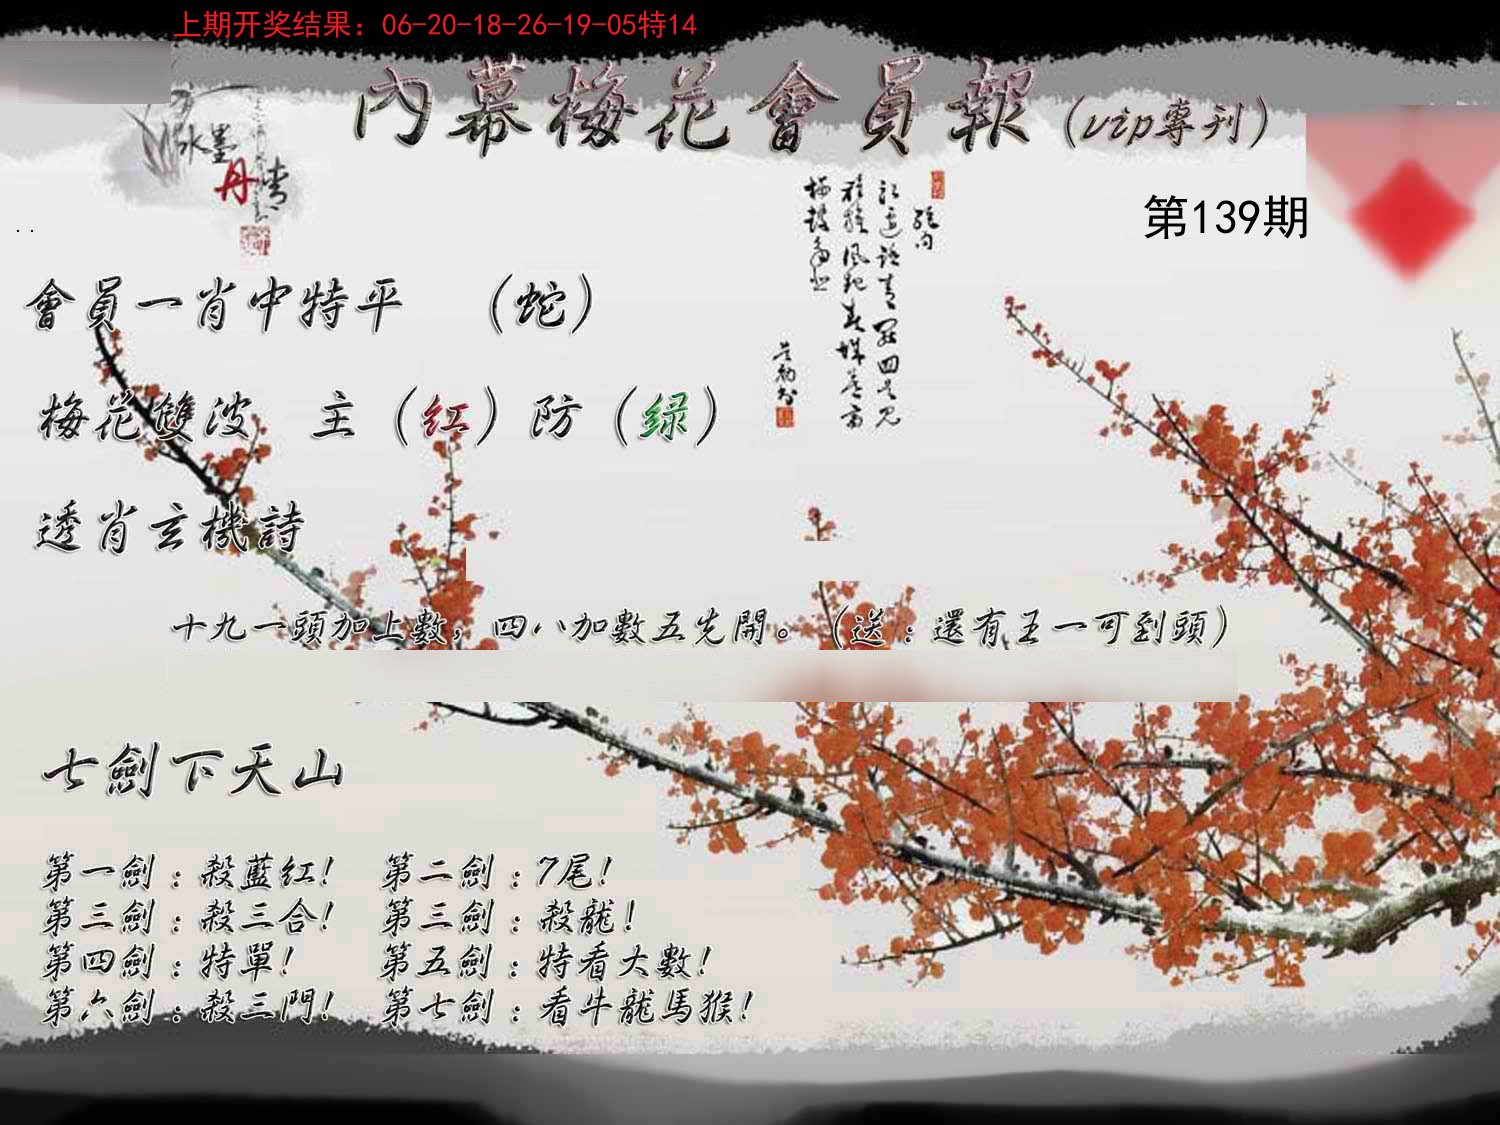 上期开奖结果：06-20-18-26-19-05特14
內幕梅花會員報（vip專刊）
水墨
丹情
第139期
會員一肖中特平　（蛇）
梅花雙波　主（红）防（绿）
透肖玄機詩
十九一頭加上數，四八加數五先開。（送：還有王一可到頭）
七劍下天山
第一劍：殺藍红！　第二劍：7尾！
第三劍：殺三合！　第三劍：殺龍！
第四劍：特單！　第五劍：特看大數！
第六劍：殺三門！　第七劍：看牛龍馬猴！